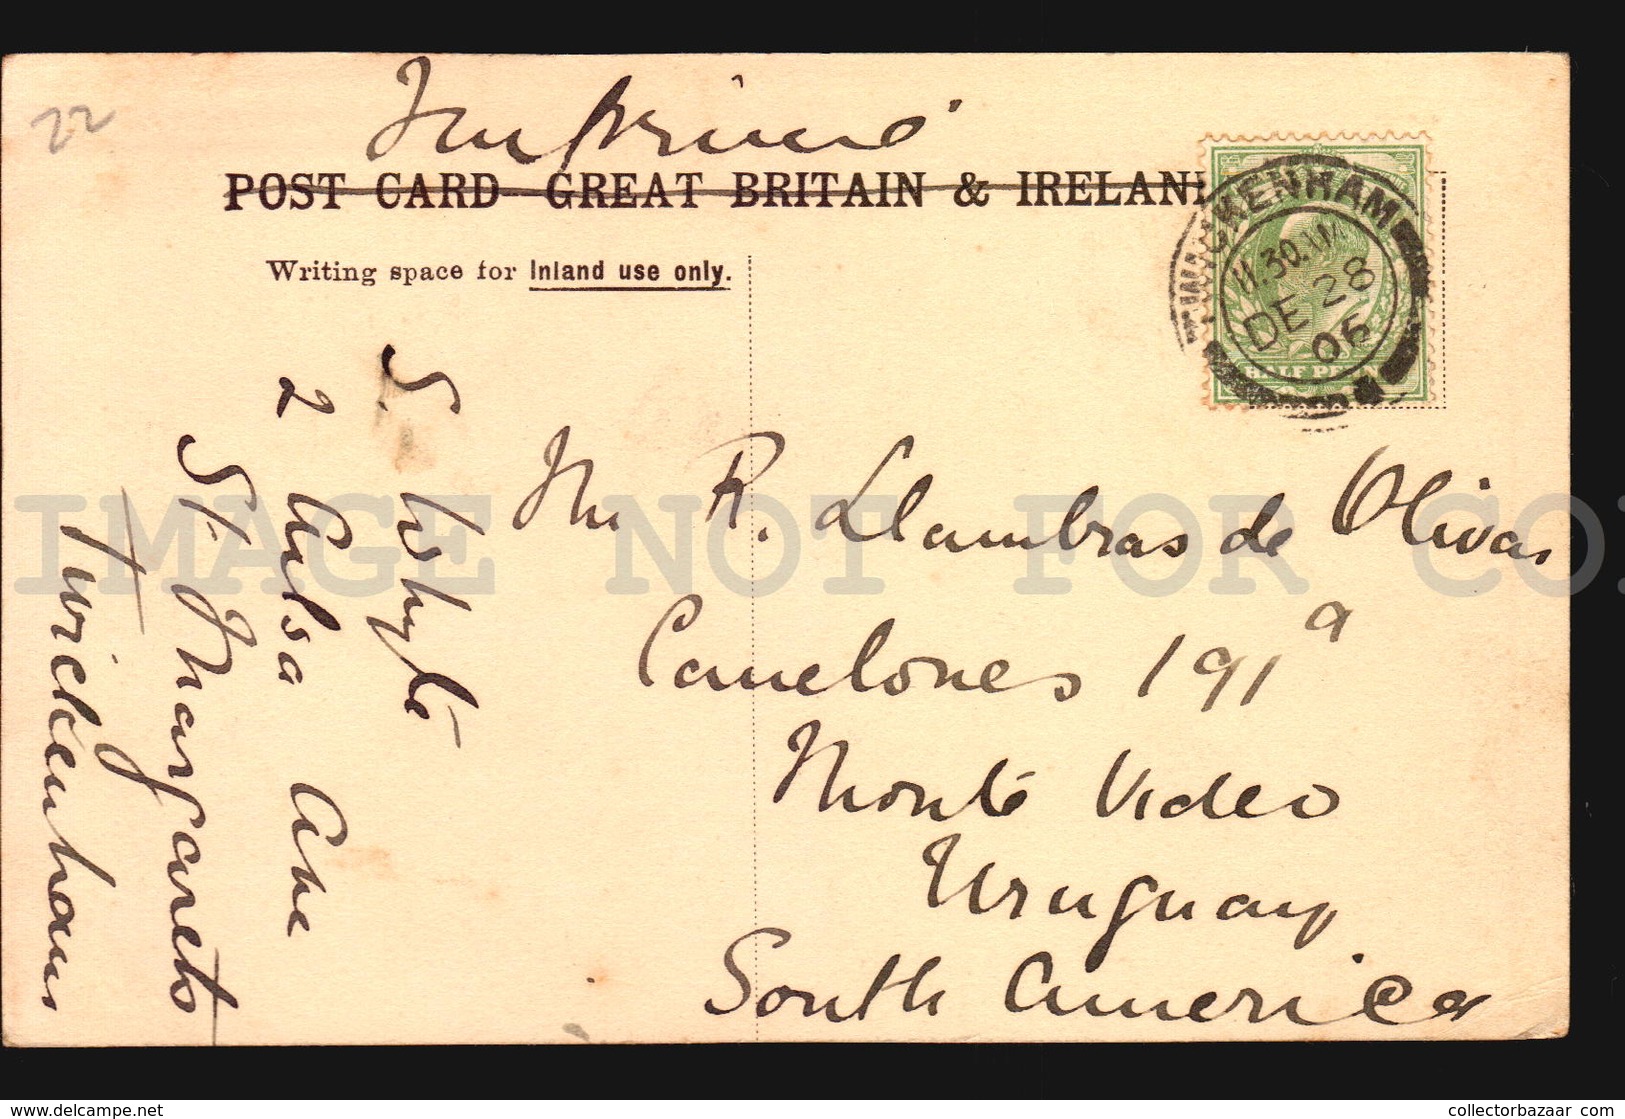 22
Imprimé
POST CARD GREAT BRITAIN & IRELAN
Writing space for Inland use only.
TWICKENHAM
11.30 AM
DE 28
06
HALF PENN
S. Whyte
2 Ailsa Ave
St. Margarets
Twickenham
Mr R. Llambras de Olivar
Canelones 191 a
Monte Video
Uruguay
South America
IMAGE NOT FOR CO
www.delcampe.net
collectorbazaar.com